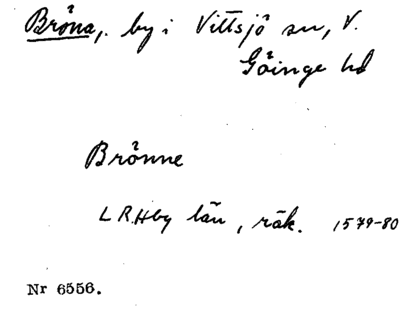 Bröna, by i Vittsjö sn, V.
Göinge hd
Brönne
L R.Hby län, räk. 1579-80
Nr 6556.